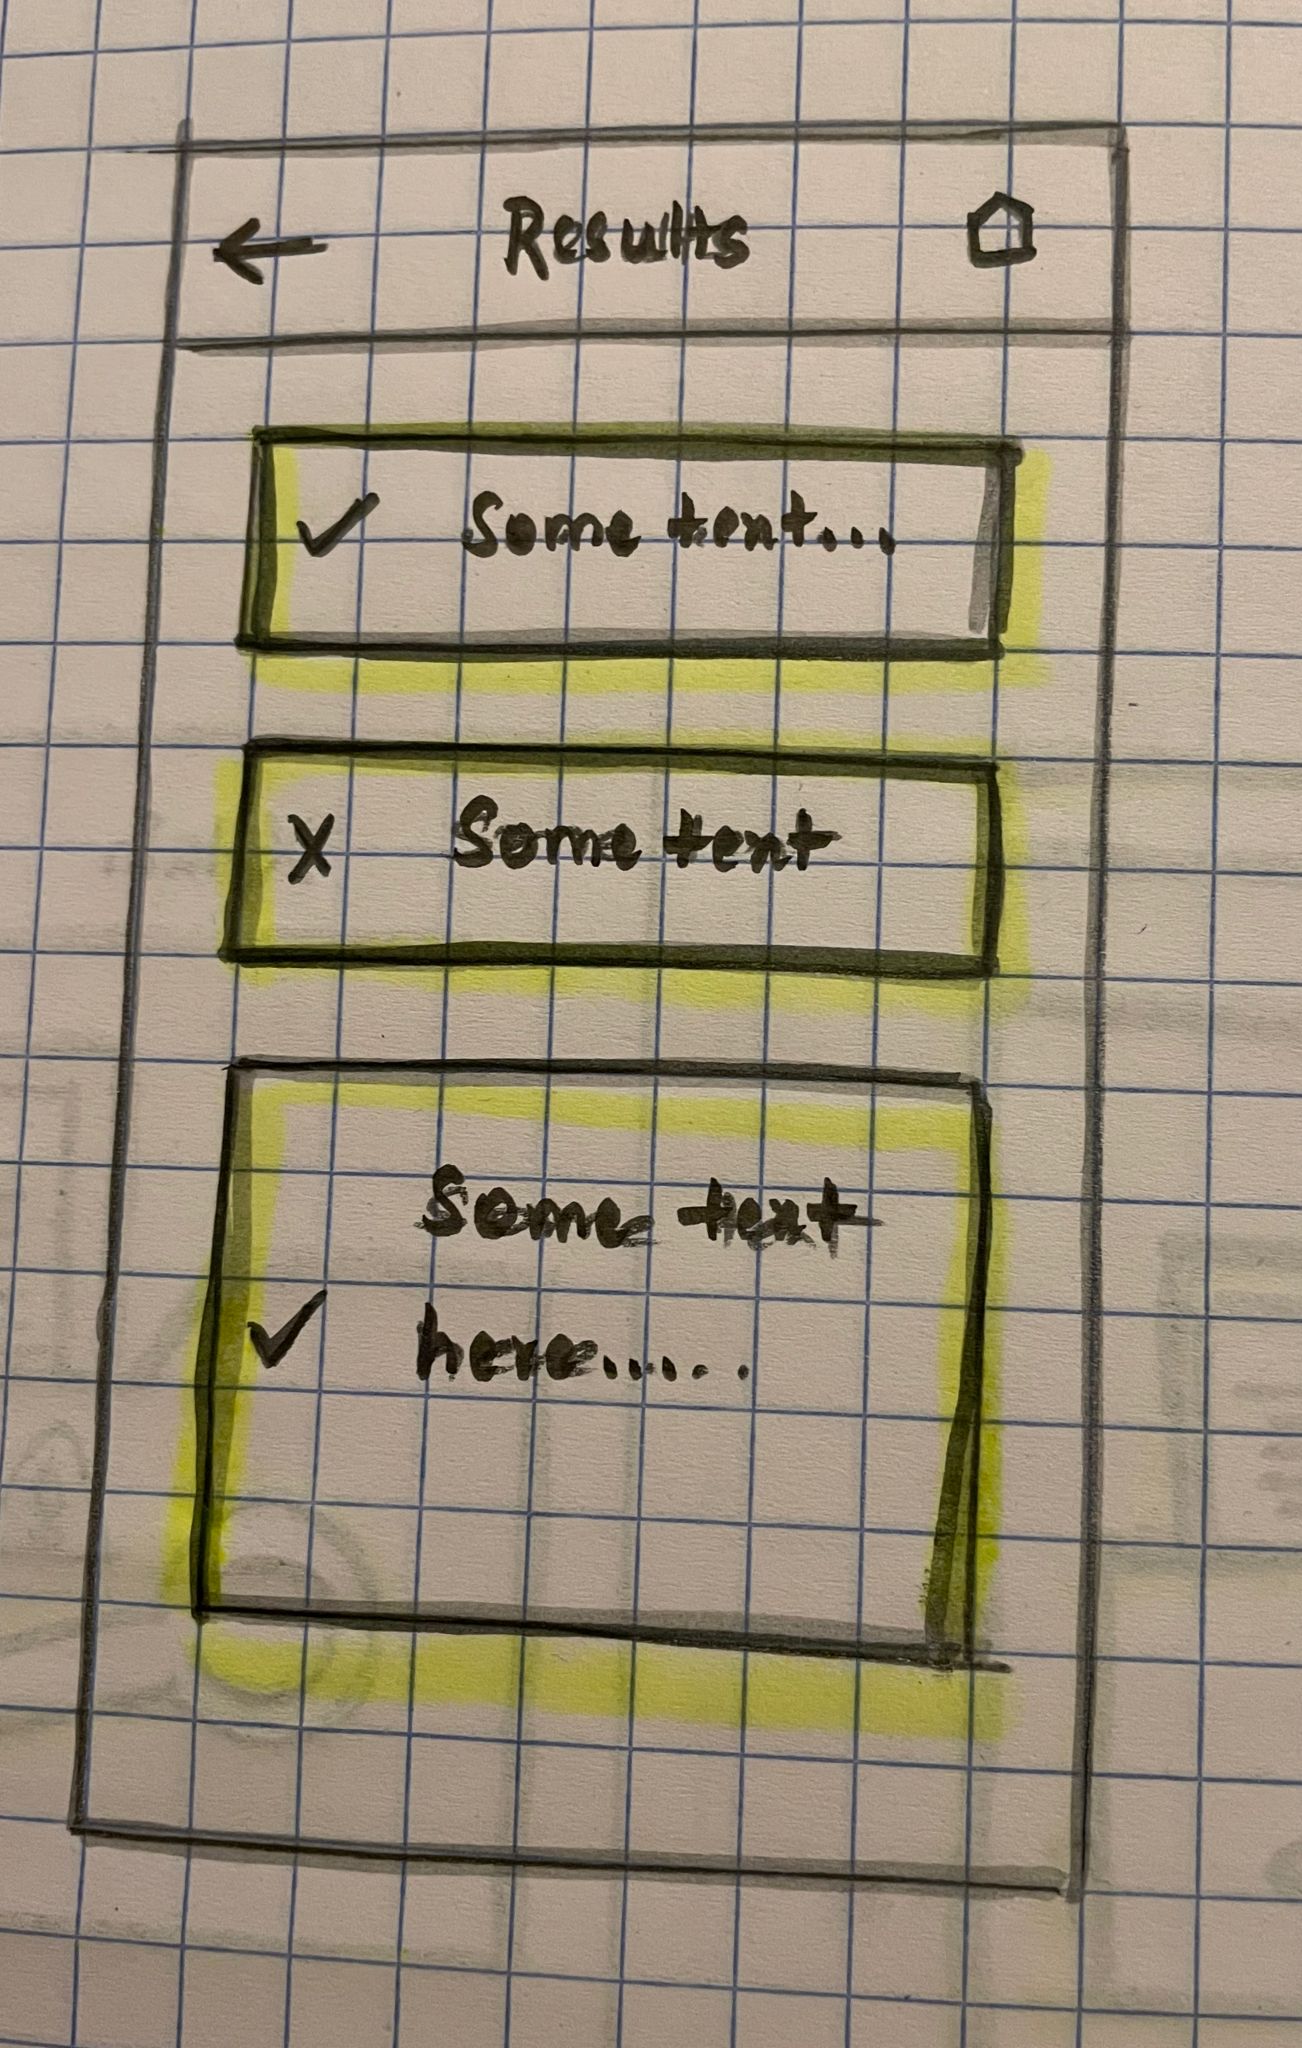 ← Results
✓ Some text...
X Some text
Some text
✓ here......